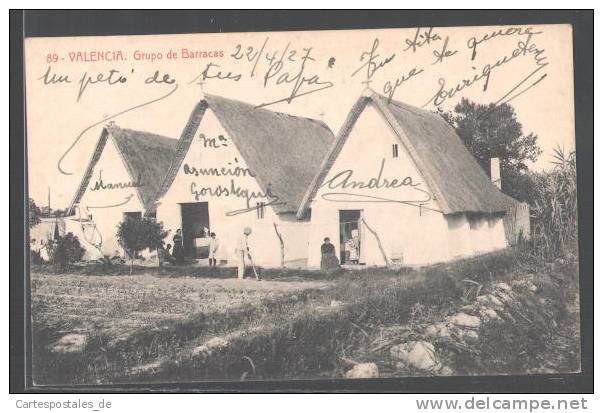 89 - VALENCIA. Grupo de Barracas
22/4/27
Un petó de tus Papa.
Tu tita que te quiere
que es
Enriqueta
Manuel
Mª
asunción
Gorostegui
Andrea
Cartespostales_de
www.delcampe.net